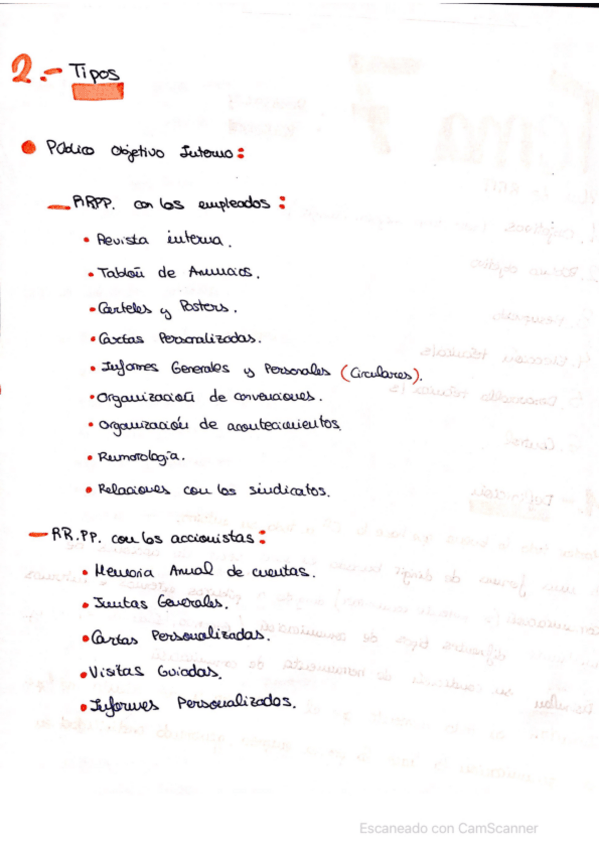 2.- Tipos
Público Objetivo Interno:
RRPP. con los empleados:
Revista interna.
Tablón de Anuncios.
Carteles y Posters.
Cartas Personalizadas.
Informes Generales y Personales (Circulares).
Organización de convenciones.
Organización de acontecimientos.
Rumorología.
Relaciones con los sindicatos.
RR.PP. con los accionistas:
Memoria Anual de cuentas.
Juntas Generales.
Cartas Personalizadas.
Visitas Guiadas.
Informes Personalizados.
Escaneado con CamScanner